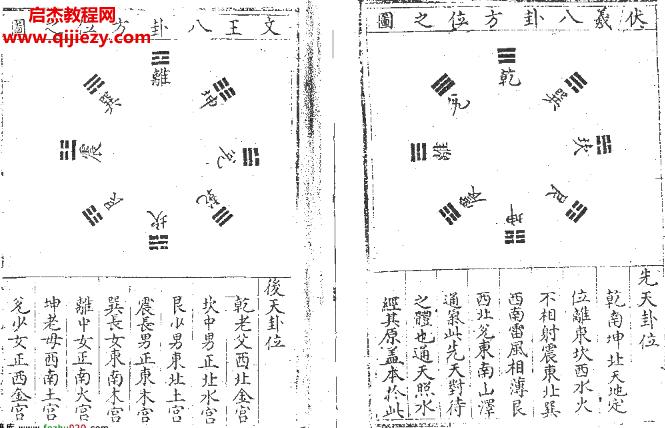 启杰教程网
www.qijiezy.com
伏羲八卦方位之圖
乾
兌
巽
離
坎
震
艮
坤
先天卦位
乾南坤北天地定
位離東坎西水火
不相射震東北巽
西南雷風相薄艮
西北兌東南山澤
通氣此先天對待
之體也通天照水
經其原蓋本於此
文王八卦方位之圖
離
巽
坤
震
兌
艮
乾
坎
後天卦位
乾老父西北金宮
坎中男正北水宮
艮少男東北土宮
震長男正東木宮
巽長女東南木宮
離中女正南火宮
坤老母西南土宮
兌少女正西金宮